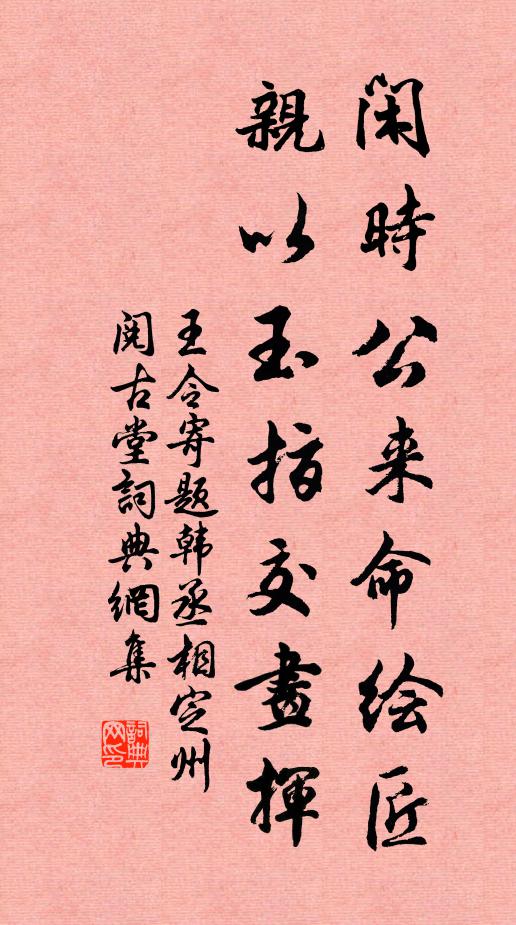 闲時公来命绘匠
親以玉指交畫揮
王令寄题韩丞相定州
阅古堂詞典網集
詞典网印